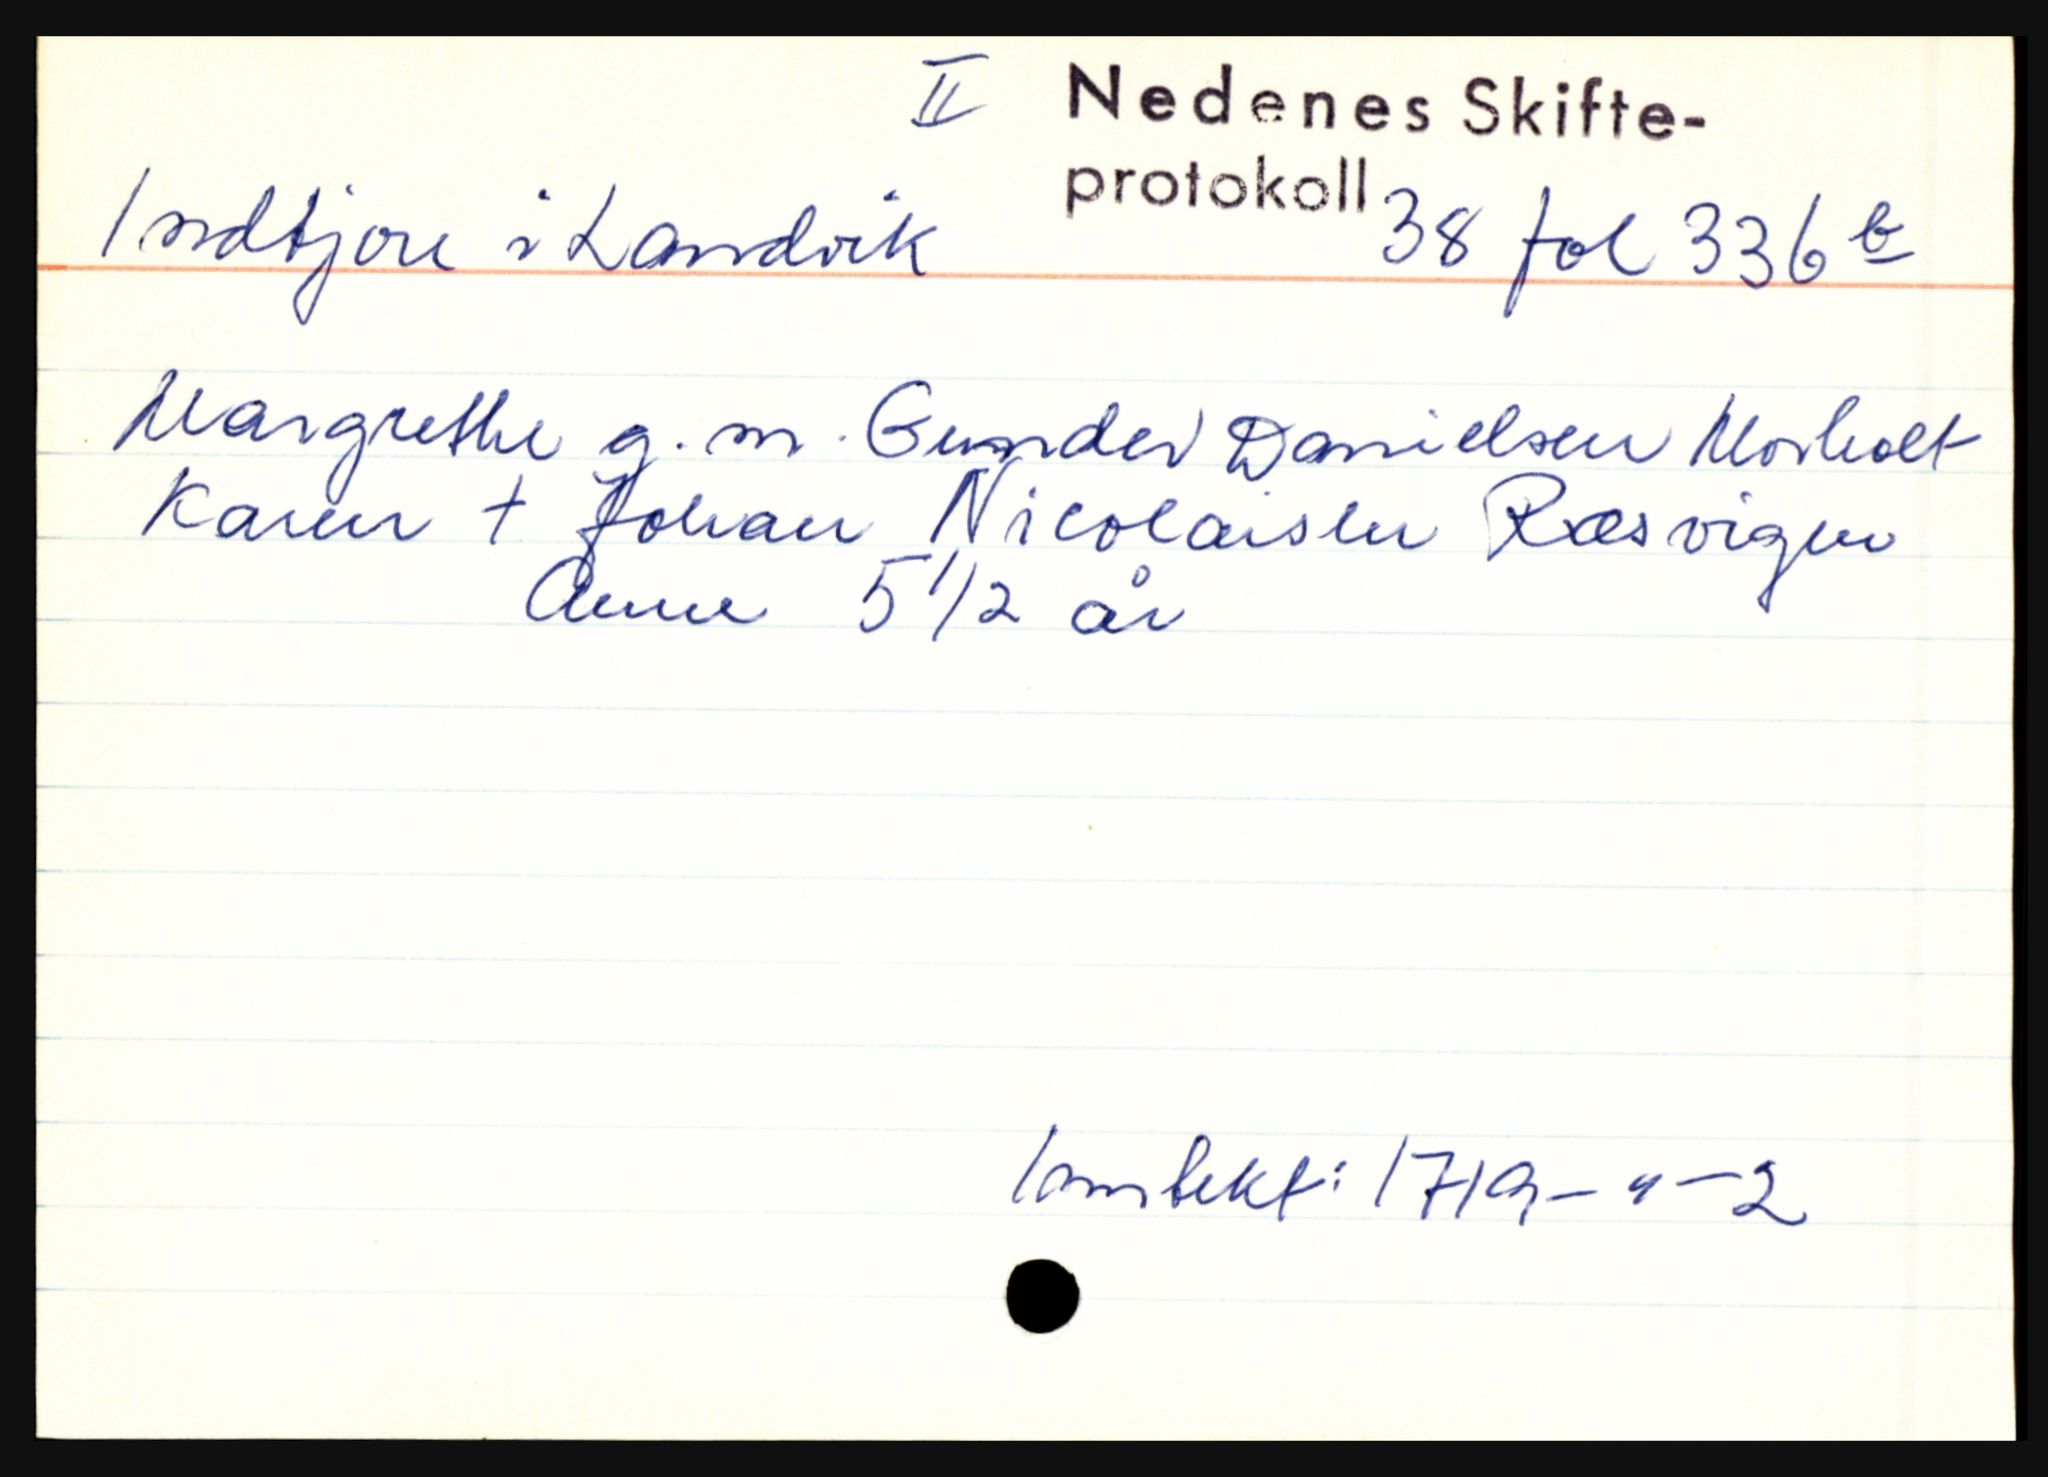 II Nedenes Skifte-
protokoll 38 fol 336 b
Indtjore i Landvik
Margrethe g. m. Gunder Danielsen Morholt
Karen + Johan Nicolaisen Ræsvigen
Anne 5 1/2 år
Inntekt: 1719 - " - 2